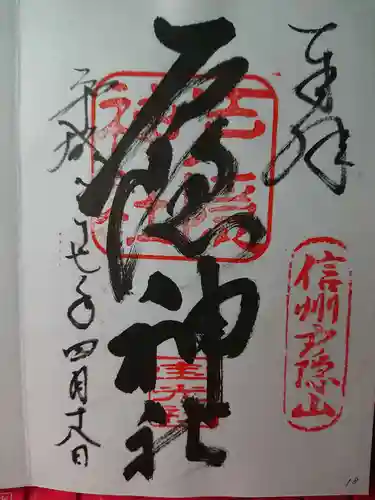 奉拝
信州戸隠山
戸隠神社
戸隠
神社
平成二十七年四月十八日
18